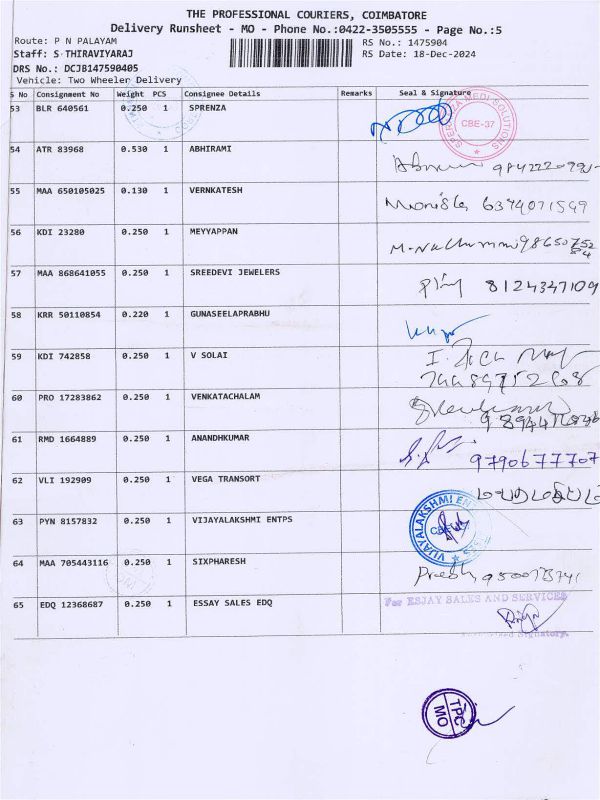 THE PROFESSIONAL COURIERS, COIMBATORE
Delivery Runsheet - MO - Phone No.:0422-3505555 - Page No.:5
Route: P N PALAYAM RS No.: 1475904
Staff: S THIRAVIYARAJ RS Date: 18-Dec-2024
DRS No.: DCJB147590405
Vehicle: Two Wheeler Delivery
S No Consignment No Weight PCS Consignee Details Remarks Seal & Signature
53 BLR 640561 0.250 1 SPRENZA
SPERENZA MEDI SOLUTIONS CBE-37
54 ATR 83968 0.530 1 ABHIRAMI
55 MAA 650105025 0.130 1 VERNKATESH 6374071549
56 KDI 23280 0.250 1 MEYYAPPAN
57 MAA 868641055 0.250 1 SREEDEVI JEWELERS 8124347109
58 KRR 50110854 0.220 1 GUNASEELAPRABHU
59 KDI 742858 0.250 1 V SOLAI
60 PRO 17283862 0.250 1 VENKATACHALAM
61 RMD 1664889 0.250 1 ANANDHKUMAR 9790677707
62 VLI 192909 0.250 1 VEGA TRANSORT
63 PYN 8157832 0.250 1 VIJAYALAKSHMI ENTPS
VIJAYALAKSHMI
64 MAA 705443116 0.250 1 SIXPHARESH
65 EDQ 12368687 0.250 1 ESSAY SALES EDQ
For ESJAY SALES AND SERVICES
Signatory.
TPC
MO